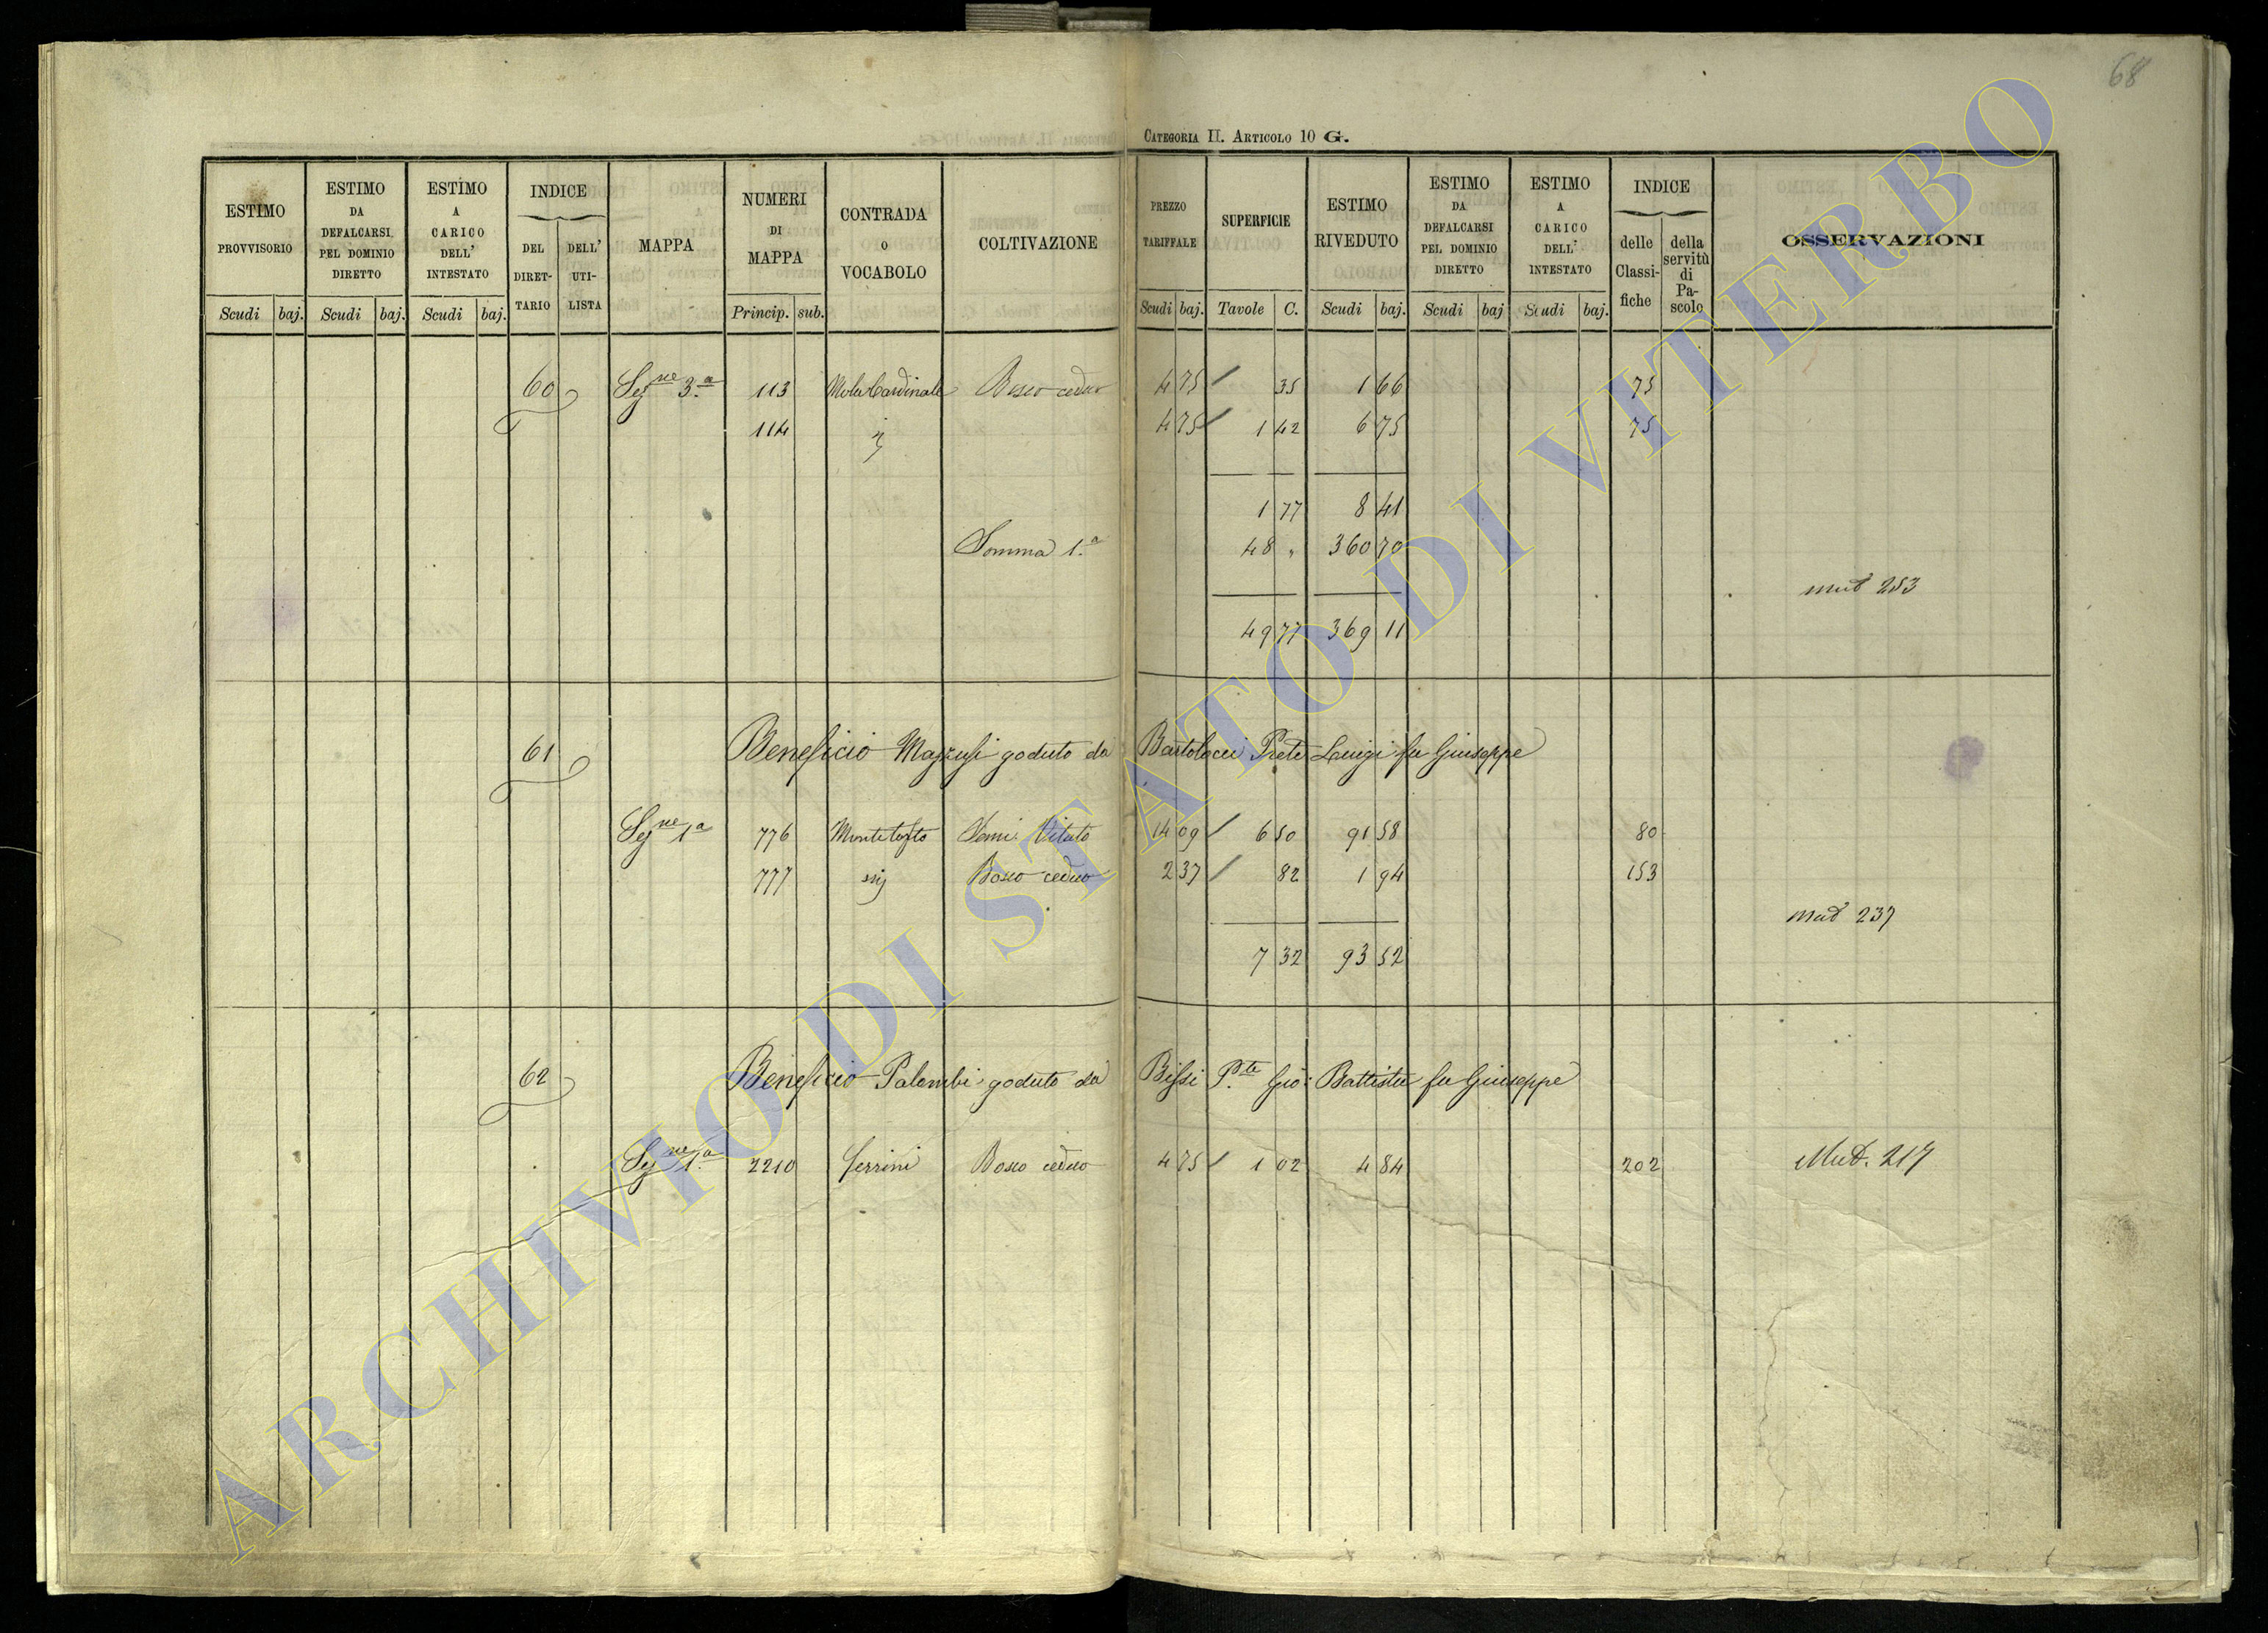 68
CATEGORIA II. ARTICOLO 10 G.
ESTIMO PROVVISORIO Scudi baj.
ESTIMO DA DEFALCARSI PEL DOMINIO DIRETTO Scudi baj.
ESTIMO A CARICO DELL' INTESTATO Scudi baj.
INDICE DEL DIRETTARIO DELL' UTILISTA
MAPPA
NUMERI DI MAPPA Princip. sub.
CONTRADA O VOCABOLO
COLTIVAZIONE
PREZZO TARIFFALE Scudi baj.
SUPERFICIE Tavole C.
ESTIMO RIVEDUTO Scudi baj.
ESTIMO DA DEFALCARSI PEL DOMINIO DIRETTO Scudi baj
ESTIMO A CARICO DELL' INTESTATO Scudi baj.
INDICE delle Classifiche della servitù di Pascolo
OSSERVAZIONI
60 Sezne 3.a 113 Mola Cardinale Bosco ceduo 4 75 / 35 1 66 75
114 ij 4 75 / 1 42 6 75 75
1 77 8 41
Somma 1.a 48 " 360 70
mut 253
49 77 369 11
61 Beneficio Mazzusi goduto da Bartolacci Prete Luigi fu Giuseppe
Sezne 1a 776 Montetosto Semi: Vitato 14 09 / 6 50 91 58 80
777 iij Bosco ceduo 2 37 / 82 1 94 153
mut 237
7 32 93 52
62 Beneficio Palombi goduto da Bissi P.te Gio: Battista fu Giuseppe
Sezne 1.a 2210 Ferrini Bosco ceduo 4 75 / 1 02 4 84 202 Mut. 217
ARCHIVIO DI STATO DI VITERBO